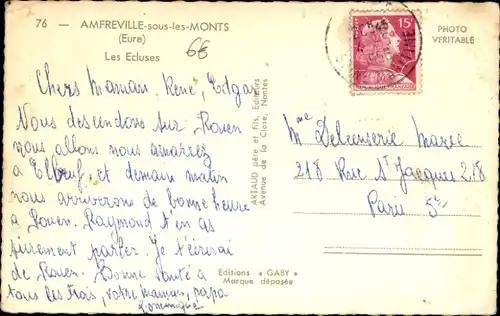 76 — AMFREVILLE-sous-les-MONTS
(Eure)
Les Ecluses
6€
Chers Maman, René, Edgar
Nous descendons sur Rouen
nous allons nous amarrez
à Elbeuf, et demain matin
nous arriverons de bonne heure
à Rouen. Raymond t'en as
surement parler. Je t'écrirai
de Rouen. Bonne santé à
tous les trois, votre maman, papa
Dominique
ARTAUD père et fils, Editeurs
Avenue de la Close, Nantes
Editions « GABY »
Marque déposée
15F
PHOTO
VERITABLE
Mme Delcenserie Marie
218 Rue St Jacques 218
Paris 5e